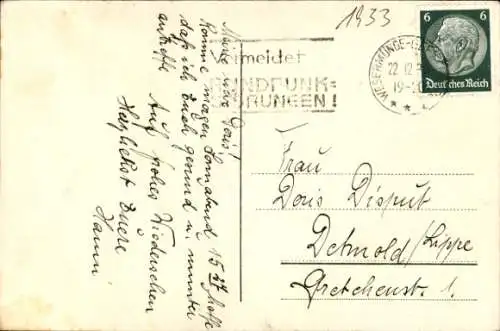 1933
6 6
Deutsches Reich
WESERMÜNDE-G
22.12.
19-20
Vermeidet
RUNDFUNK=
STÖRUNGEN!
Meine liebe Doris!
Komme morgen Sonnabend 15 27 hoffe
daß ich Euch gesund u. munter
antreffe
Auf frohes Wiedersehen
Herzlichst Euere
Hanni
Frau
Doris Disput
Detmold/Lippe
Gretchenst. 1.